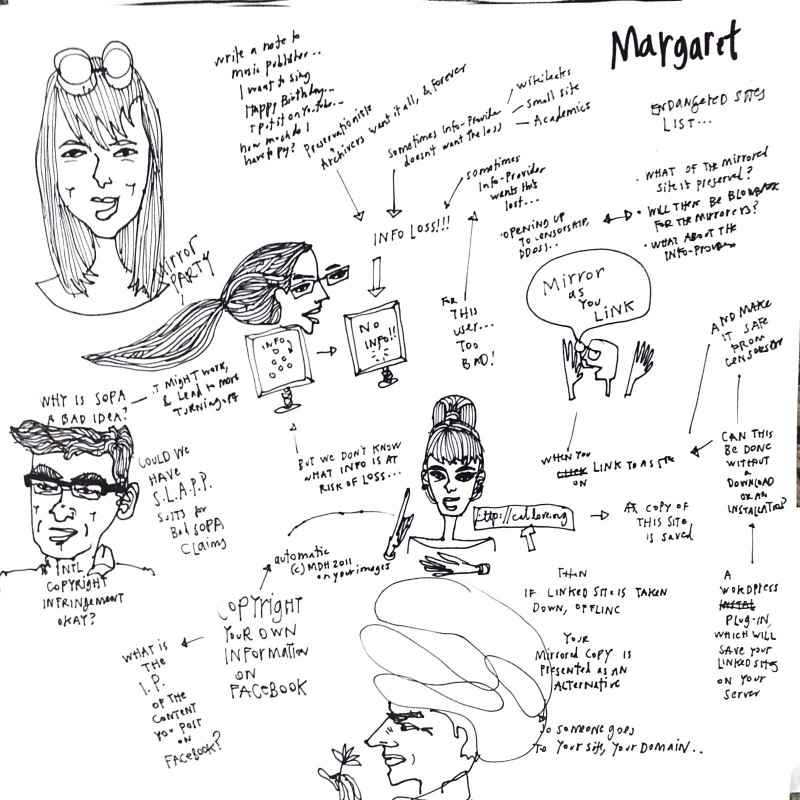 Margaret
write a note to
music publisher...
I want to sing
Happy Birthday...
I put it on YouTube...
how much do I
have to pay?
Preservationists
Archivers want it all, & forever
sometimes Info-Provider
doesn't want the loss
Wikileaks
small site
Academics
ENDANGERED SITES
LIST...
sometimes
Info-Provider
wants this
lost...
INFO LOSS!!!
OPENING UP
TO CENSORSHIP,
DDOSS..
• WHAT OF THE MIRRORED
SITE IS PRESERVED?
• WILL THERE BE BLOWBACK
FOR THE MIRRORERS?
• WHAT ABOUT THE
INFO-PROVIDERS
MIRROR
PARTY
Mirror
as
You
LINK
INFO
NO
INFO!!
FOR
THIS
user...
TOO
BAD!
AND MAKE
IT SAFE
FROM
CENSORSHIP
WHY IS SOPA
A BAD IDEA?
IT MIGHT WORK,
& LEAD TO MORE
TURNING OFF
COULD WE
HAVE
S.L.A.P.P.
SUITS for
Bad SOPA
Claims
BUT WE DON'T KNOW
WHAT INFO IS AT
RISK OF LOSS...
WHEN YOU
CLICK LINK TO A SITE
ON
CAN THIS
BE DONE
WITHOUT
A
DOWNLOAD
OR AN
INSTALLATION?
A COPY OF
THIS SITE
is saved
INTL
COPYRIGHT
INFRINGEMENT
OKAY?
automatic
(c) MDH 2011
on your images
COPYRIGHT
YOUR OWN
INFORMATION
ON
FACEBOOK
WHAT IS
THE
I.P.
OF THE
CONTENT
YOU POST
ON
FACEBOOK?
THEN
IF LINKED SITE IS TAKEN
DOWN, OFFLINE
YOUR
Mirrored COPY IS
presented as AN
ALTERNATIVE
SO SOMEONE goes
TO YOUR SITE, YOUR DOMAIN..
A
WORDPRESS
INSTAL
PLUG-IN,
WHICH WILL
SAVE YOUR
LINKED SITES
ON YOUR
Server